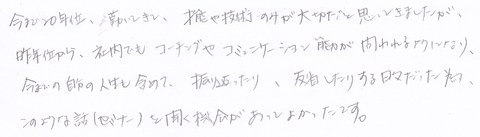 今まで20年位、働いてきて、推や技術のみが大切だと思ってきましたが、
昨年位から、社内でもコーチングやコミュニケーション能力が問われるようになり、
今までの自分の人生も含めて、振り返ったり、反省したりする日々だった為、
このような話(セミナー)を聞く機会があってよかったです。